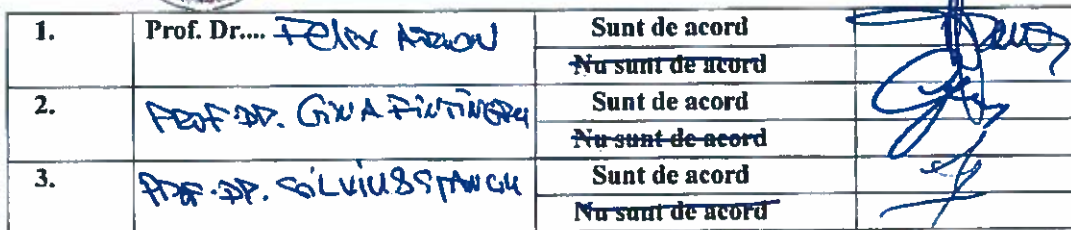 1. Prof. Dr.... Felix Sunt de acord
Nu sunt de acord
2. PROF. DR. GINA Sunt de acord
Nu sunt de acord
3. PROF. DR. SILVIU STANCIU Sunt de acord
Nu sunt de acord